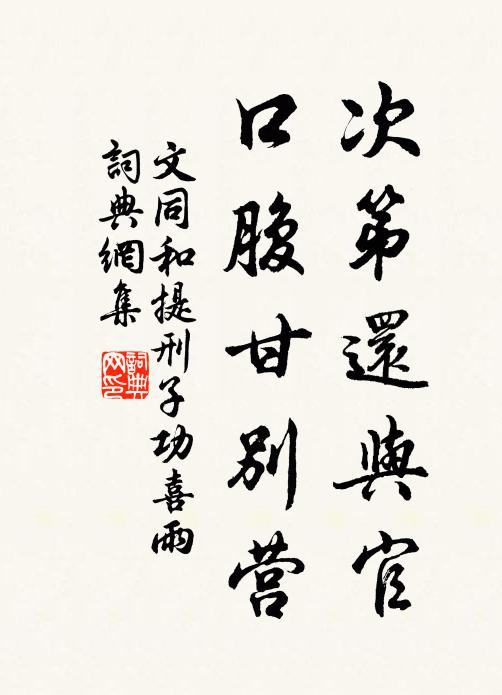 次第還與官
口腹甘別營
文同和提刑子功喜雨
詞典網集
詞典網印